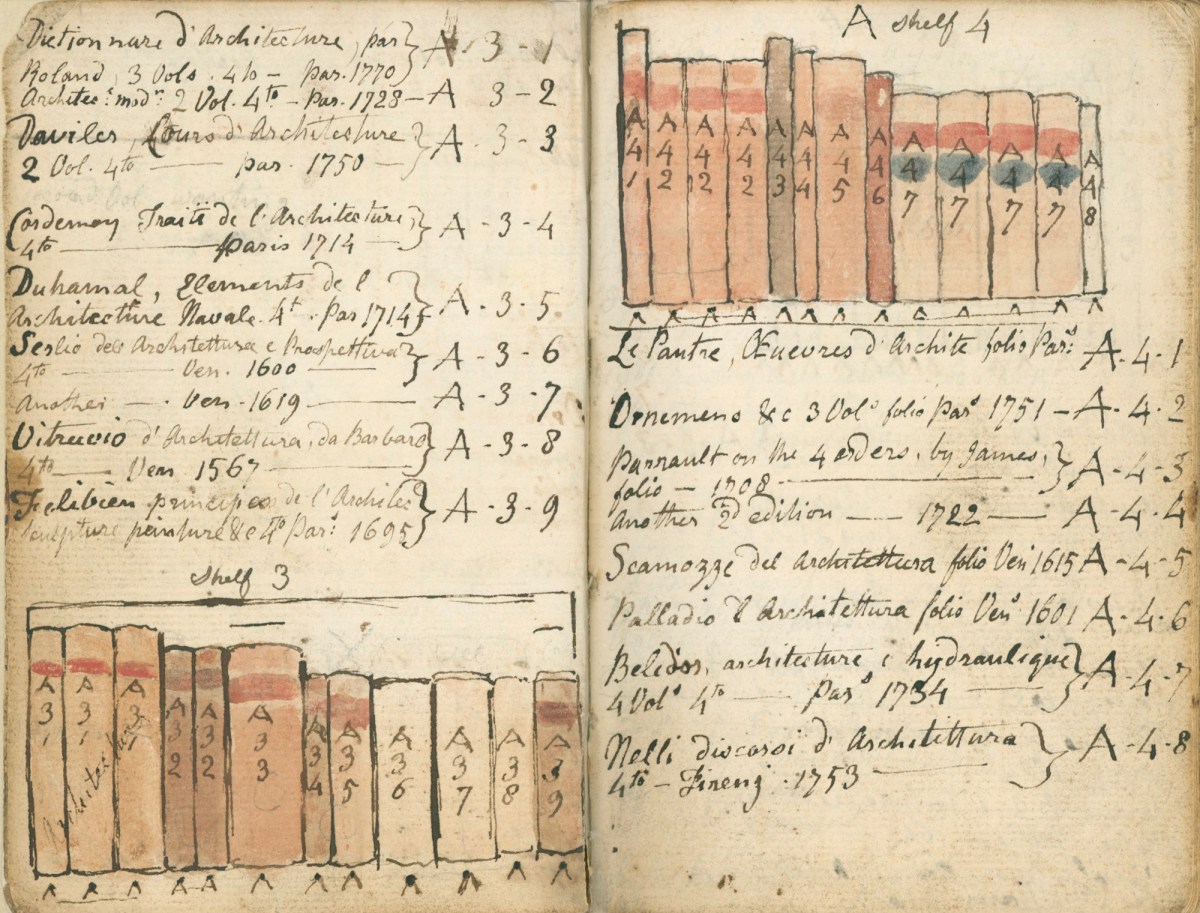 Dictionnare d'Architecture, par } A-3-1
Roland, 3 Vols. 4to - Par. 1770
Architec.e modn. 2 Vol. 4to - Par. 1728 - A 3-2
Daviler, Cours d'Architecture } A-3-3
2 Vol. 4to — par. 1750 —
Cordemoy Traité de l'Architecture, } A-3-4
4to — paris 1714 —
Duhamal, Elements de l } A-3-5
Architecture Navale. 4t. Par 1714
Serlio dell Architettura e Prospettiva } A-3-6
4to — Ven. 1600 —
Another — Ven. 1619 — A-3-7
Vitruvio d'Architettura, da Barbaro } A-3-8
4to — Ven 1567 —
Felibien principes de l'Architec } A-3-9
sculpture peinture &c 4to Pars. 1695
shelf 3
A A A A A A A A A A A A
3 3 3 3 3 3 3 3 3 3 3 3
1 1 1 2 2 3 4 5 6 7 8 9
A A A A A A A A A A A A
A shelf 4
A A A A A A A A A A A A A
4 4 4 4 4 4 4 4 4 4 4 4 4
1 2 2 2 3 4 5 6 7 7 7 7 8
A A A A A A A A A A A A A
Le Pautre, Œuevres d'Archite folio Pars. A-4-1
Ornemens &c 3 Vols folio Pars 1751 - A-4-2
Parrault on the 4 orders, by James, } A-4-3
folio - 1708 —
Another 2d edition — 1722 — A-4-4
Scamozze del Architettura folio Ven 1615 A-4-5
Palladio l Architettura folio Vens 1601 A-4-6
Belidor, architecture e hydraulique } A-4-7
4 Vols 4to — Pars 1734 —
Nelli discorsi d' Architettura } A-4-8
4to - Firenz. 1753 —